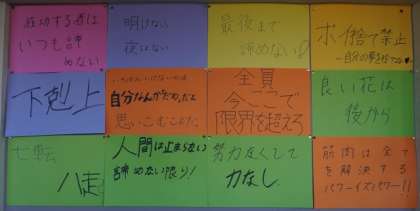 成功する者は
いつも諦
めない
明けない
夜はない
最後まで
諦めない
ポイ捨て禁止
下剋上
いちばんいけないのは
自分なんかだめだと
思いこむことだ
全員
今ここで
限界を超えろ
良い花は
後から
七転
八走
人間は止まらない
諦めない限り!
努力なくして
力なし
筋肉は全て
を解決する
パワーイズパワー!!